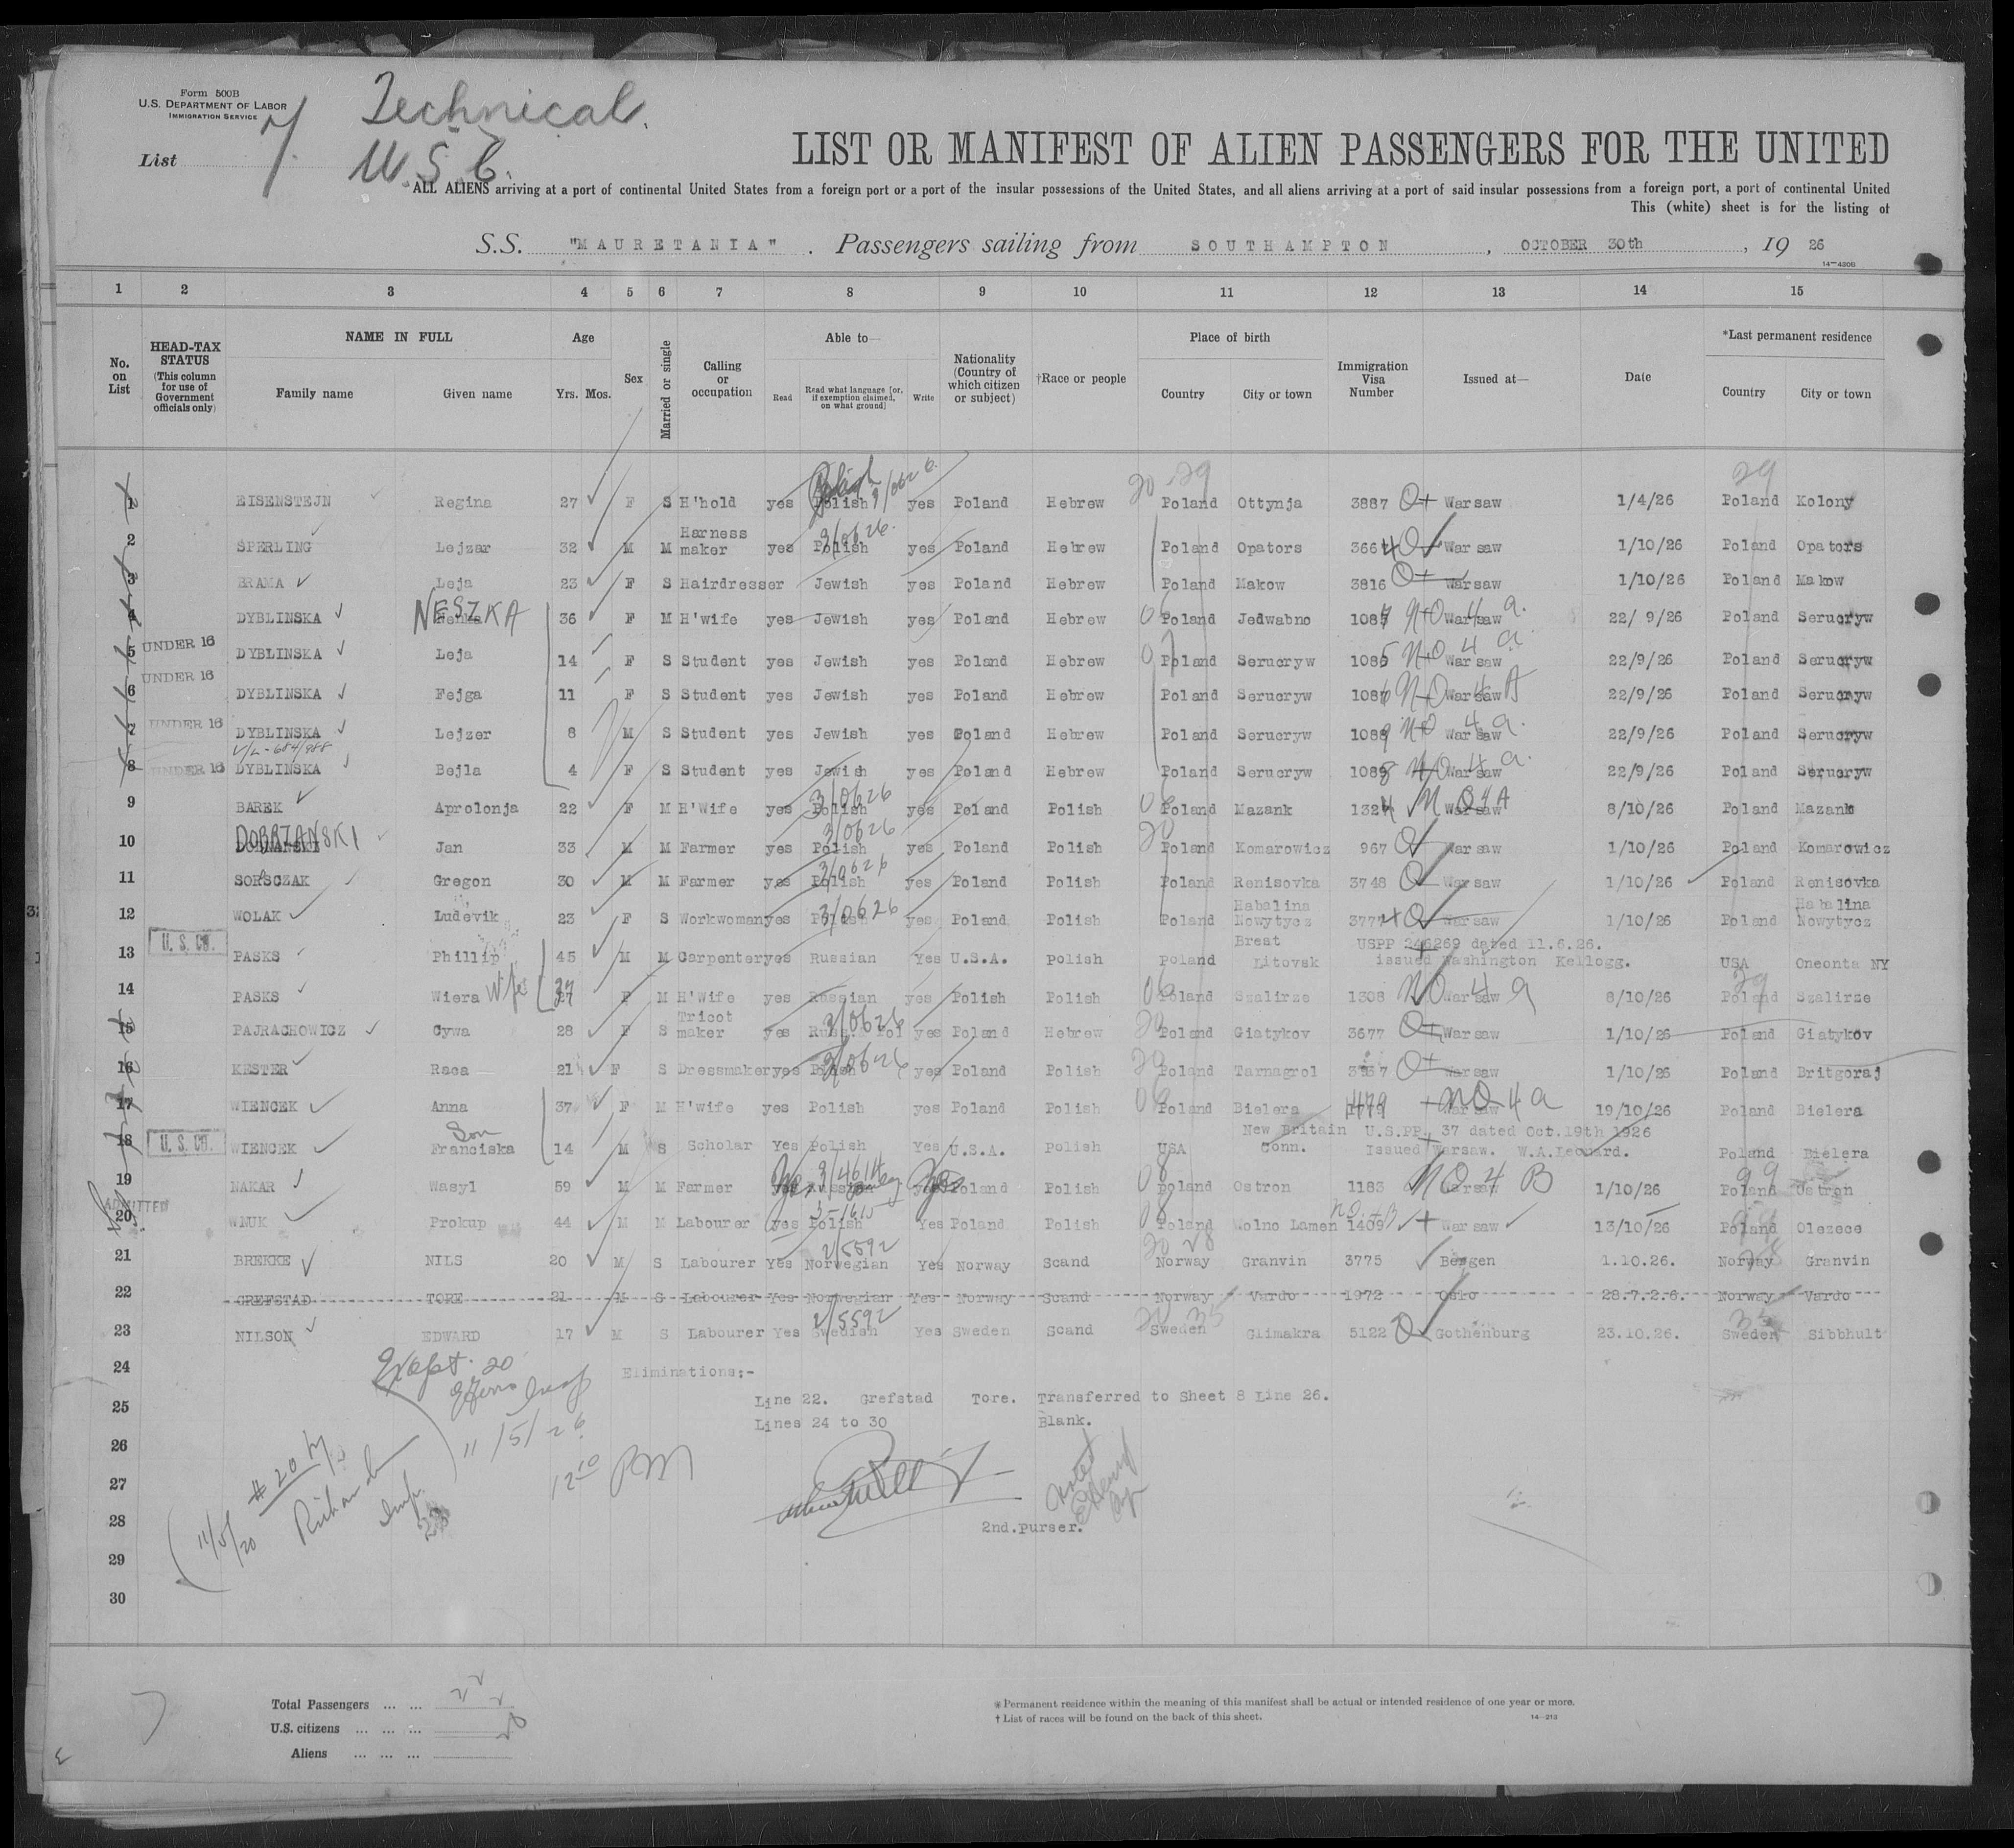 Form 500B
U.S. DEPARTMENT OF LABOR
IMMIGRATION SERVICE
List 7.
Technical
U.S.C.
LIST OR MANIFEST OF ALIEN PASSENGERS FOR THE UNITED
ALL ALIENS arriving at a port of continental United States from a foreign port or a port of the insular possessions of the United States, and all aliens arriving at a port of said insular possessions from a foreign port, a port of continental United
This (white) sheet is for the listing of
S.S. "MAURETANIA". Passengers sailing from SOUTHAMPTON, OCTOBER 30th, 19 26
14—420B
1 2 3 4 5 6 7 8 9 10 11 12 13 14 15
No. on List
HEAD-TAX STATUS (This column for use of Government officials only)
NAME IN FULL
Family name Given name
Age
Yrs. Mos.
Sex
Married or single
Calling or occupation
Able to—
Read Read what language [or, if exemption claimed, on what ground] Write
Nationality (Country of which citizen or subject)
†Race or people
Place of birth
Country City or town
Immigration Visa Number
Issued at—
Date
*Last permanent residence
Country City or town
1 EISENSTEJN Regina 27 F S H'hold yes Polish yes Poland Hebrew Poland Ottynja 3887 Warsaw 1/4/26 Poland Kolony
2 SPERLING Lejzar 32 M M Harness maker yes Polish yes Poland Hebrew Poland Opators 3664 Warsaw 1/10/26 Poland Opators
3 BRAMA Leja 23 F S Hairdresser Jewish yes Poland Hebrew Poland Makow 3816 Warsaw 1/10/26 Poland Makow
4 DYBLINSKA NESZKA 36 F M H'wife yes Jewish yes Poland Hebrew Poland Jedwabno 1087 NO 4 a. Warsaw 22/ 9/26 Poland Serucryw
5 UNDER 16 DYBLINSKA Leja 14 F S Student yes Jewish yes Poland Hebrew Poland Serucryw 1085 NO 4 a Warsaw 22/9/26 Poland Serucryw
6 UNDER 16 DYBLINSKA Fejga 11 F S Student yes Jewish yes Poland Hebrew Poland Serucryw 1086 NO 4 A Warsaw 22/9/26 Poland Serucryw
7 UNDER 16 DYBLINSKA Lejzer 8 M S Student yes Jewish yes Poland Hebrew Poland Serucryw 1089 NO 4 a. Warsaw 22/9/26 Poland Serucryw
8 UNDER 16 DYBLINSKA Bejla 4 F S Student yes Jewish yes Poland Hebrew Poland Serucryw 1088 NO 4 a. Warsaw 22/9/26 Poland Serucryw
9 BAREK Aprolonja 22 F M H'Wife yes Polish yes Poland Polish Poland Mazank 1324 NO 4 A Warsaw 8/10/26 Poland Mazank
10 DOBRZANSKI Jan 33 M M Farmer yes Polish yes Poland Polish Poland Komarowicz 967 Warsaw 1/10/26 Poland Komarowicz
11 SORSCZAK Gregon 30 M M Farmer yes Polish yes Poland Polish Poland Renisovka 3748 Warsaw 1/10/26 Poland Renisovka
12 WOLAK Ludevik 23 F S Workwoman yes Polish yes Poland Polish Poland Habalina Nowytycz 3777 Warsaw 1/10/26 Poland Habalina Nowytycz
13 U.S. CN. PASKS Phillip 45 M M Carpenter yes Russian Yes U.S.A. Polish Poland Brest Litovsk USPP 246269 dated 11.6.26. issued Washington Kellogg. USA Oneonta NY
14 PASKS Wiera wife 37 F M H'Wife yes Russian yes Polish Polish Poland Szalirze 1308 NO 4 a Warsaw 8/10/26 Poland Szalirze
15 PAJRACHOWICZ Cywa 28 F S Tricot maker yes Russ. Pol yes Poland Hebrew Poland Giatykov 3677 Warsaw 1/10/26 Poland Giatykov
16 KESTER Rasa 21 F S Dressmaker yes Polish yes Poland Polish Poland Tarnagrol Warsaw 1/10/26 Poland Britgoraj
17 WIENCEK Anna 37 F M H'wife yes Polish yes Poland Polish Poland Bielera 1479 NO 4 a Warsaw 19/10/26 Poland Bielera
18 U.S. CN. WIENCEK Son Franciska 14 M S Scholar Yes Polish Yes U.S.A. Polish USA New Britain Conn. U.S.PP. 37 dated Oct.19th 1926 Issued Warsaw. W.A.Leonard. Poland Bielera
19 NAKAR Wasyl 59 M M Farmer Yes Poland Polish Poland Ostron 1183 NO 4 B Warsaw 1/10/26 Poland Ostron
ADMITTED
20 WNUK Prokup 44 M M Labourer yes Polish Yes Poland Polish Poland Wolno Lamen 1409 Warsaw 13/10/26 Poland Olezece
21 BREKKE NILS 20 M S Labourer Yes Norwegian Yes Norway Scand Norway Granvin 3775 Bergen 1.10.26. Norway Granvin
22 GREFSTAD TORE 21 M S Labourer Yes Norwegian Yes Norway Scand Norway Vardo 1972 Oslo 28.7.2.6. Norway Vardo
23 NILSON EDWARD 17 M S Labourer Yes Swedish Yes Sweden Scand Sweden Glimakra 5122 Gothenburg 23.10.26. Sweden Sibbhult
24 Eliminations:-
Line 22. Grefstad Tore. Transferred to Sheet 8 Line 26.
25
Lines 24 to 30 Blank.
26
27
28
2nd.purser.
29
30
Except. 20
11/5/26
12 10 PM
# 20 by
Richards
Insp.
Total Passengers ... ... 22
U.S. citizens ... ... ... 2
Aliens ... ... ... 20
*Permanent residence within the meaning of this manifest shall be actual or intended residence of one year or more.
† List of races will be found on the back of this sheet.
14—213